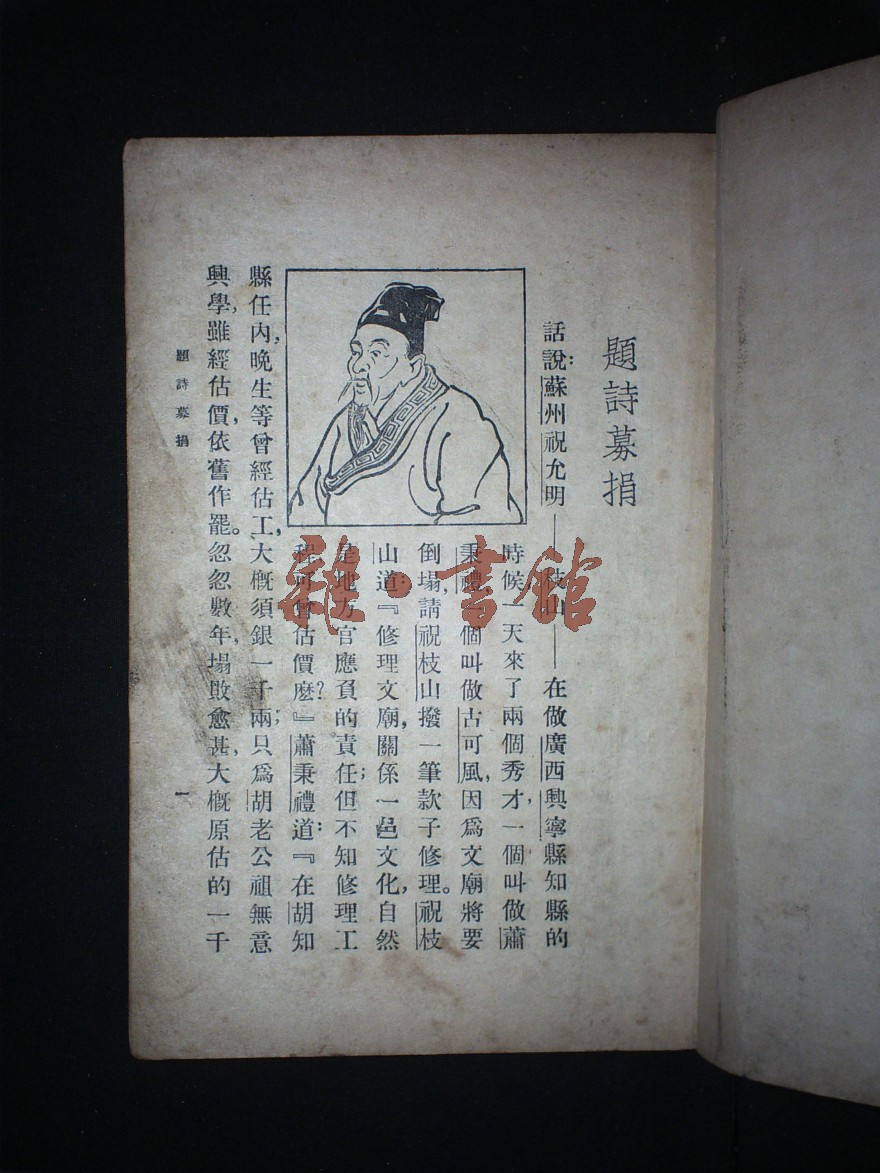 題詩募捐
話說：蘇州祝允明——枝山——在做廣西興寧縣知縣的
時候，一天來了兩個秀才，一個叫做蕭
秉禮，一個叫做古可風，因爲文廟將要
倒塌，請祝枝山撥一筆款子修理。祝枝
山道：『修理文廟，關係一邑文化，自然
是地方官應負的責任；但不知修理工
程可曾估價麽？』蕭秉禮道：『在胡知
縣任內，晚生等曾經估工，大概須銀一千兩；只爲胡老公祖無意
興學，雖經估價，依舊作罷。忽忽數年，塌敗愈甚，大概原估的一千
題詩募捐
一
雜·書館